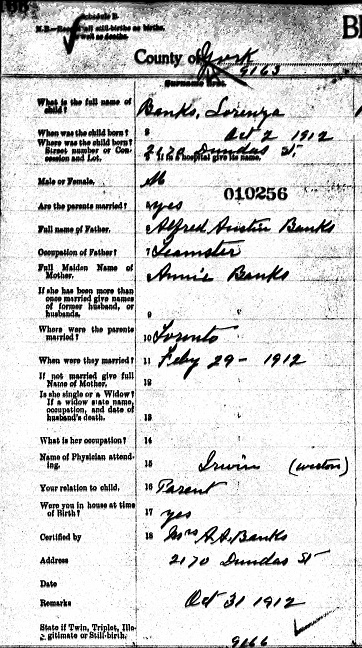 Schedule B.
N.B.—Record all still-births as births,
as well as deaths.
County of York
9163
Surname first.
What is the full name of
child?
Banks, Lorenza
When was the child born?
Oct 2 1912
Where was the child born?
Street number or Con-
cession and Lot.
2170 Dundas St
If in a hospital give its name.
Male or Female.
M
010256
Are the parents married?
yes
Full name of Father.
Alfred Austin Banks
Occupation of Father?
7 Teamster
Full Maiden Name of
Mother.
Annie Banks
If she has been more than
once married give names
of former husband, or
husbands.
9
Where were the parents
married?
10 Toronto
When were they married?
11 Feby 29 - 1912
If not married give full
Name of Mother.
12
Is she single or a Widow?
If a widow state name,
occupation, and date of
husband's death.
13
What is her occupation?
14
Name of Physician attend-
ing.
15 Irwin (weston)
Your relation to child.
16 Parent
Were you in house at time
of Birth?
17 yes
Certified by
18 Mrs A.A. Banks
Address
2170 Dundas St
Date
Remarks
Oct 31 1912
State if Twin, Triplet, Ille-
gitimate or Still-birth.
9166